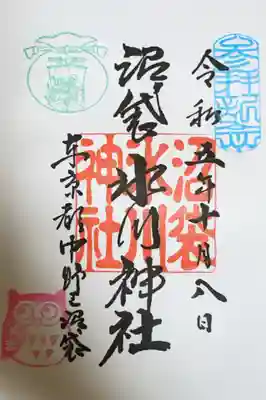 参拝記念
令和五年十月八日
沼袋氷川神社
沼袋
氷川
神社
東京都中野区沼袋